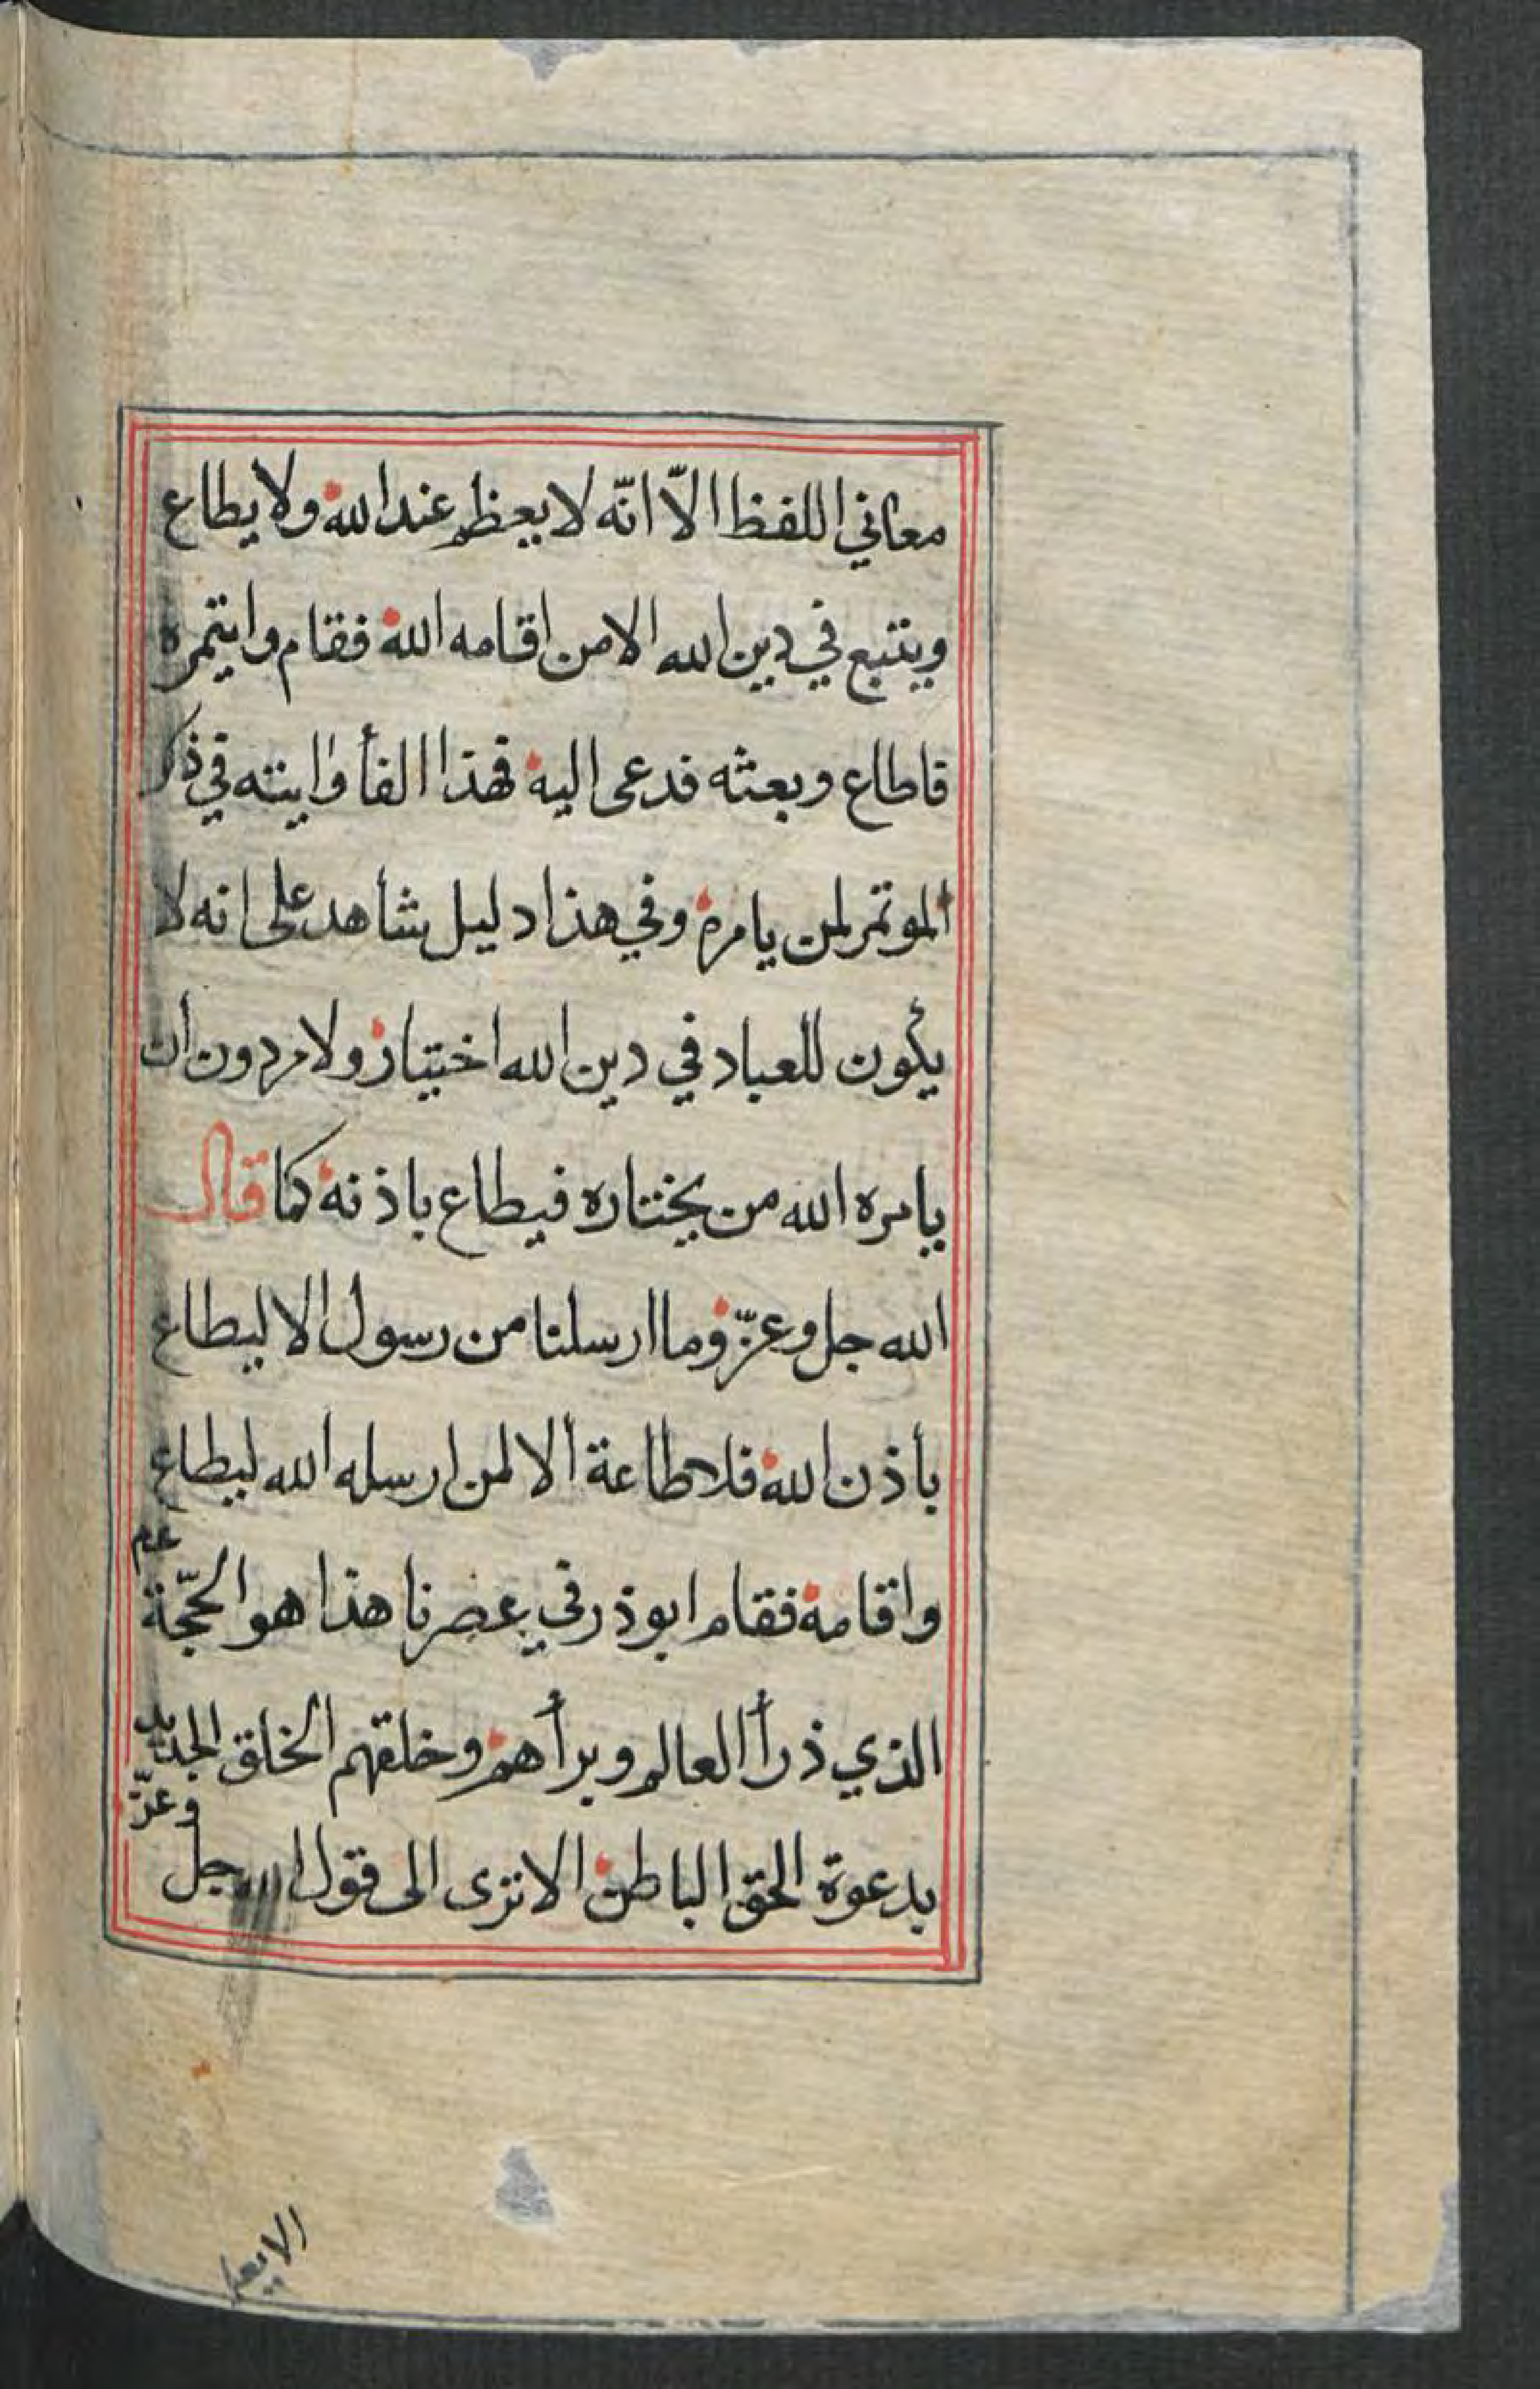 معاني اللفظ الّا انّه لا يعظم عند الله ولا يطاع
ويتبع في دين الله الا من اقامه الله فقام وايتمره
فاطاع وبعثه فدعى اليه فهذا الفأ وابنته في ذكر
الموتمر لمن يامره وفي هذا دليل شاهد على انه لا
يكون للعباد في دين الله اختيار ولا مر دون ان
يامره الله من يختاره فيطاع باذنه كما قال
الله جل وعزّ وما ارسلنا من رسول الا ليطاع
بأذن الله فلا طاعة الا لمن ارسله الله ليطاع
واقامه فقام ابوذر في عصرنا هذا هو الحجّة عم
الذي ذرأ العالم وبرأهم وخلقهم الخلق الجديد
بدعوة الحق الباطن الا ترى الى قول الله جل وعزّ